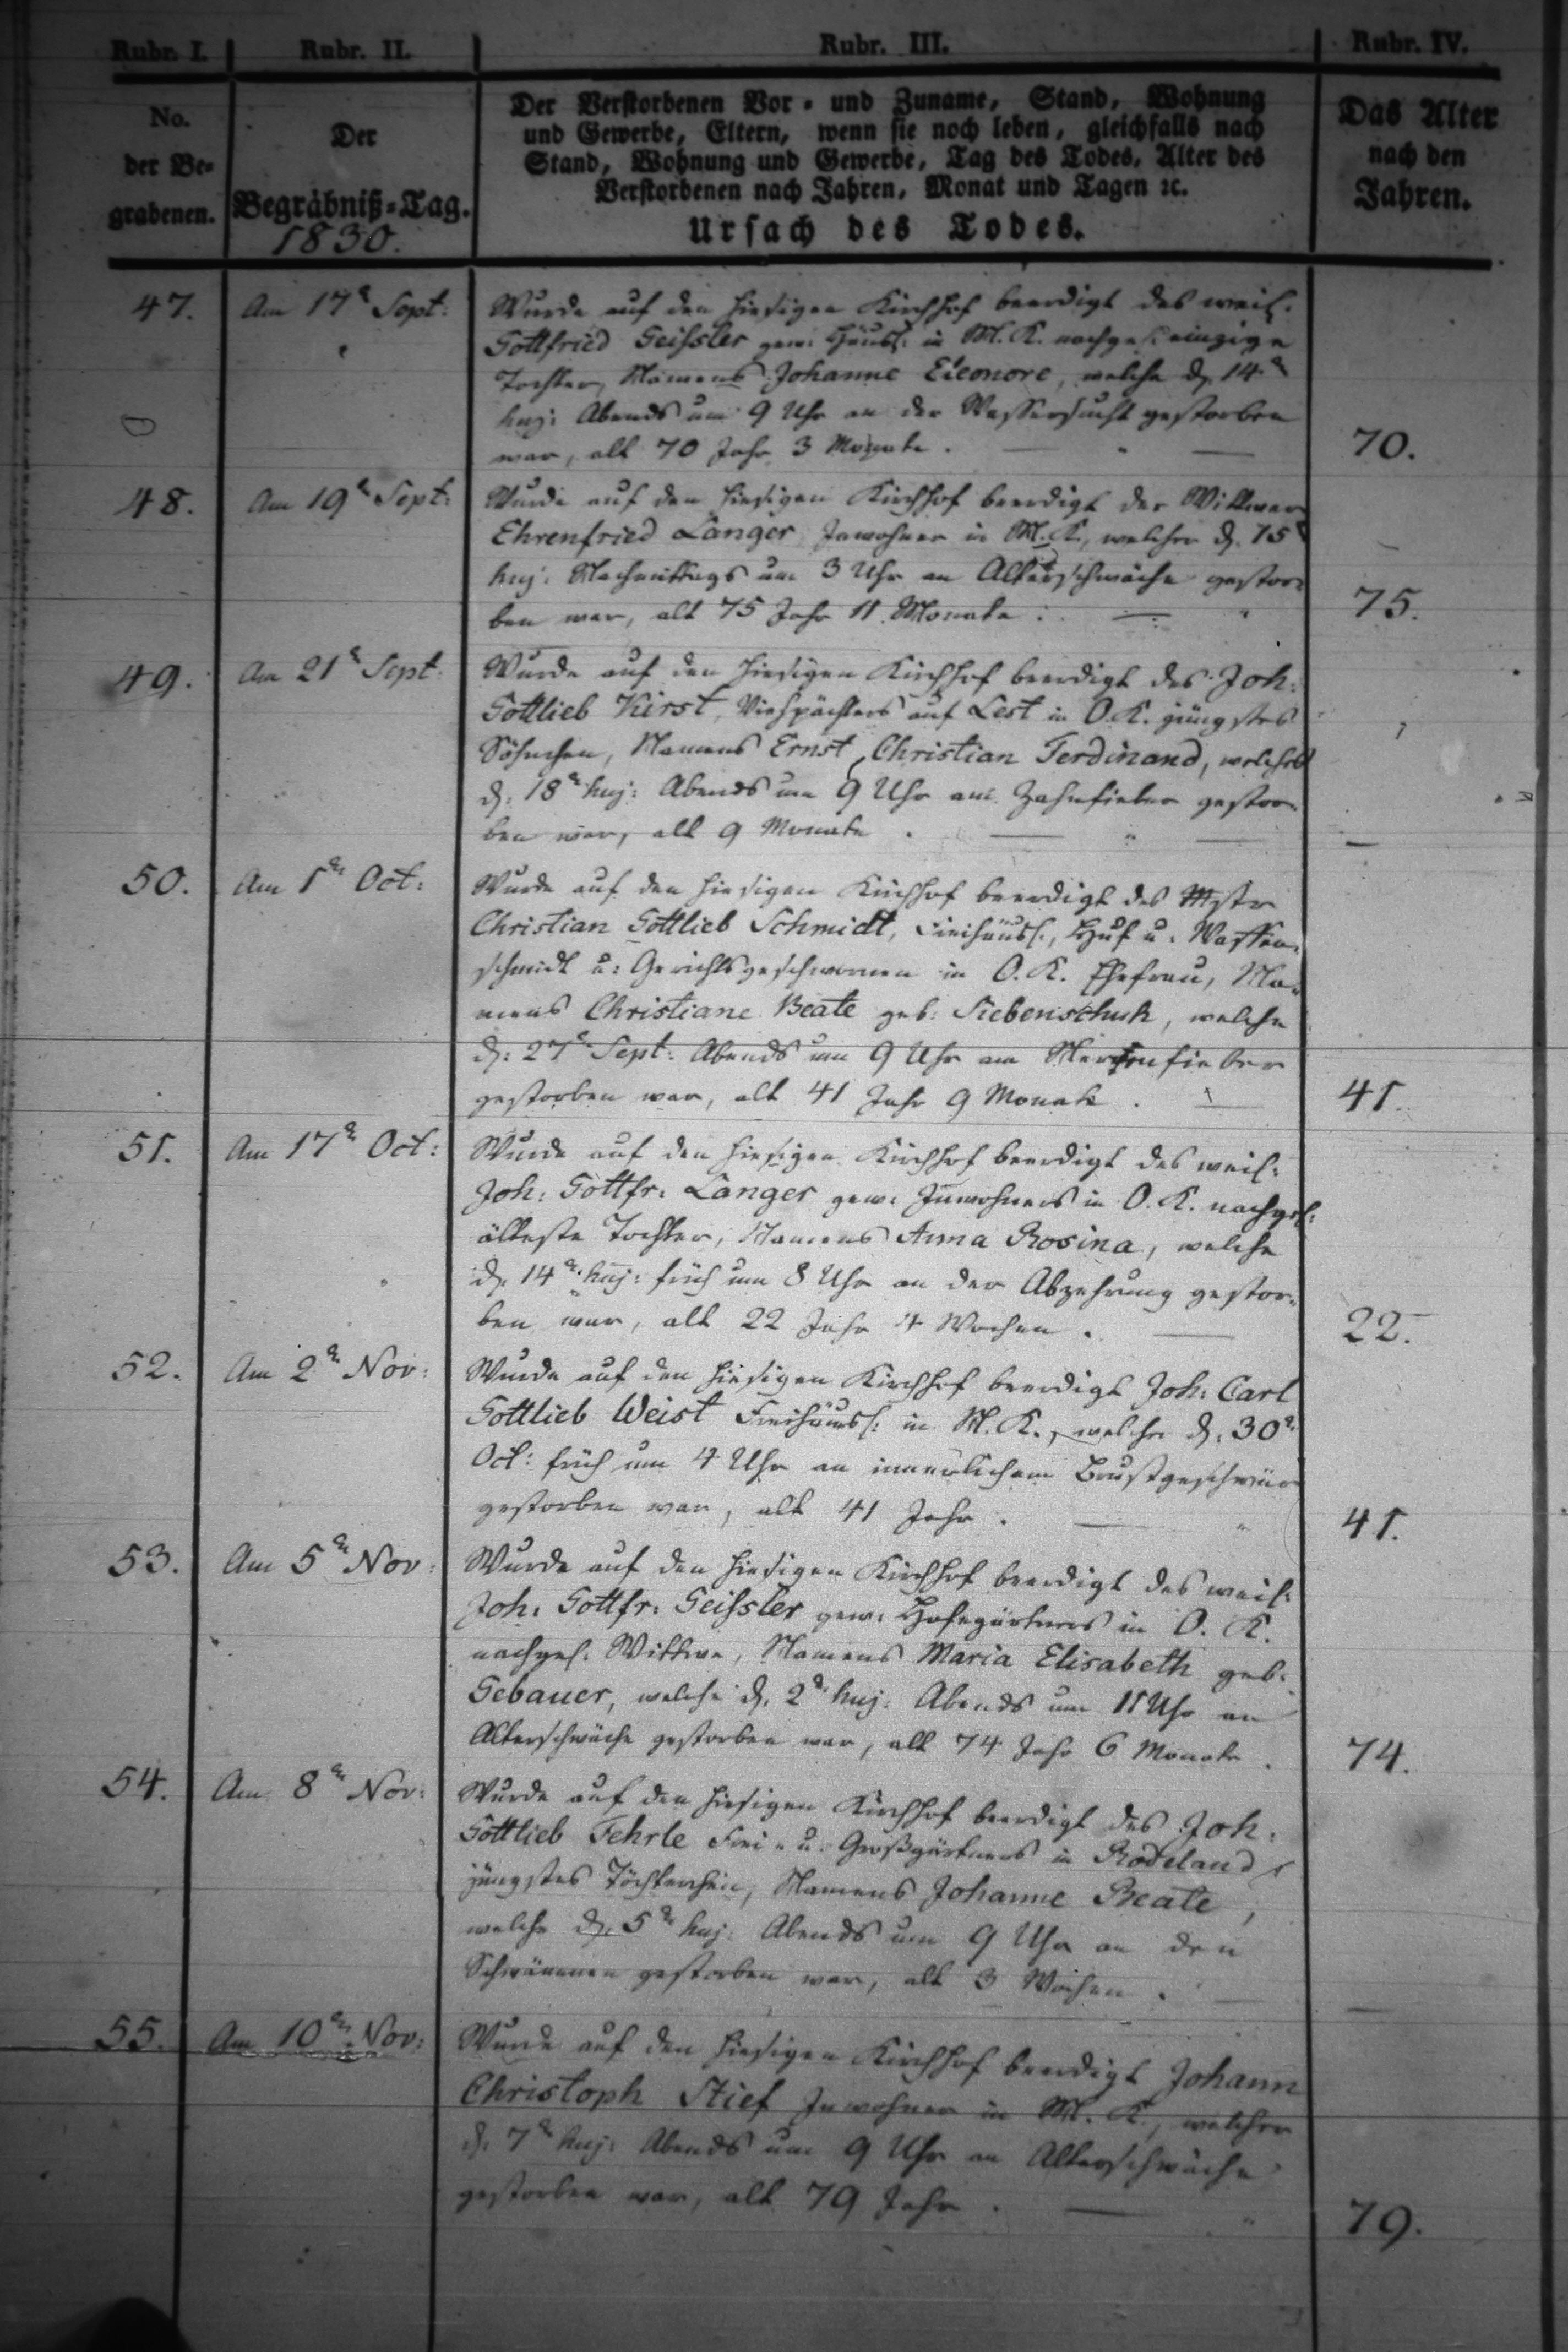 Rubr. I. Rubr. II. Rubr. III. Rubr. IV.
No. der Be-grabenen.
Der Begräbniß-Tag. 1830.
Der Verstorbenen Vor- und Zuname, Stand, Wohnung
und Gewerbe, Eltern, wenn sie noch leben, gleichfalls nach
Stand, Wohnung und Gewerbe, Tag des Todes, Alter des
Verstorbenen nach Jahren, Monat und Tagen ꝛc.
Ursach des Todes.
Das Alter nach den Jahren.
47. Am 17n Sept: Wurde auf den hiesigen Kirchhof beerdigt des weil.
Gottfried Geißler gew: Häusl: in M. K. nachgel: einzige
Tochter, Namens Johanne Eleonore, welche d. 14n
huj: Abends um 9 Uhr an der Wassersucht gestorben
war, alt 70 Jahr 3 Monate. 70.
48. Am 19n Sept: Wurde auf den hiesigen Kirchhof beerdigt der Wittwer
Ehrenfried Langer Inwohner in M. K., welcher d. 15n
huj: Nachmittags um 3 Uhr an Altersschwäche gestor-
ben war, alt 75 Jahr 11 Monate. 75.
49. Am 21n Sept: Wurde auf den hiesigen Kirchhof beerdigt des Joh:
Gottlieb Kirst, Viehpächters auf Lest in O. K. jüngstes
Söhnchen, Namens Ernst Christian Ferdinand, welches
d: 18n huj: Abends um 9 Uhr am Zahnfieber gestor-
ben war, alt 9 Monate. —
50. Am 1n Oct: Wurde auf den hiesigen Kirchhof beerdigt des Mstr
Christian Gottlieb Schmidt, Freihäusl:, Huf u: Waffen-
schmidt u: Gerichtsgeschwornen in O. K. Ehefrau, Na-
mens Christiane Beate geb: Siebenschuh, welche
d: 27n Sept: Abends um 9 Uhr am Nervenfieber
gestorben war, alt 41 Jahr 9 Monate. 41.
51. Am 17n Oct: Wurde auf den hiesigen Kirchhof beerdigt des weil:
Joh: Gottfr: Langer gew: Inwohners in O. K. nachgel:
älteste Tochter, Namens Anna Rosina, welche
d: 14n huj: früh um 8 Uhr an der Abzehrung gestor-
ben war, alt 22 Jahr 4 Wochen. 22.
52. Am 2n Nov: Wurde auf den hiesigen Kirchhof beerdigt Joh: Carl
Gottlieb Weist Freihäusl: in M. K., welcher d: 30n
Oct: früh um 4 Uhr an innerlichem Brustgeschwür
gestorben war, alt 41 Jahr. 41.
53. Am 5n Nov: Wurde auf den hiesigen Kirchhof beerdigt des weil:
Joh: Gottfr: Geißler gew: Hofegärtners in O. K.
nachgel: Wittwe, Namens Maria Elisabeth geb:
Gebauer, welche d. 2n huj: Abends um 11 Uhr an
Altersschwäche gestorben war, alt 74 Jahr 6 Monate. 74.
54. Am 8n Nov: Wurde auf den hiesigen Kirchhof beerdigt des Joh:
Gottlieb Fehrle Frei- u: Großgärtners in Rodeland
jüngstes Töchterchen, Namens Johanne Beate,
welche d. 5n huj: Abends um 9 Uhr an den
Schwämmen gestorben war, alt 3 Wochen. —
55. Am 10n Nov: Wurde auf den hiesigen Kirchhof beerdigt Johann
Christoph Stief Inwohner in M. K., welcher
d: 7n huj: Abends um 9 Uhr an Altersschwäche
gestorben war, alt 79 Jahr. 79.